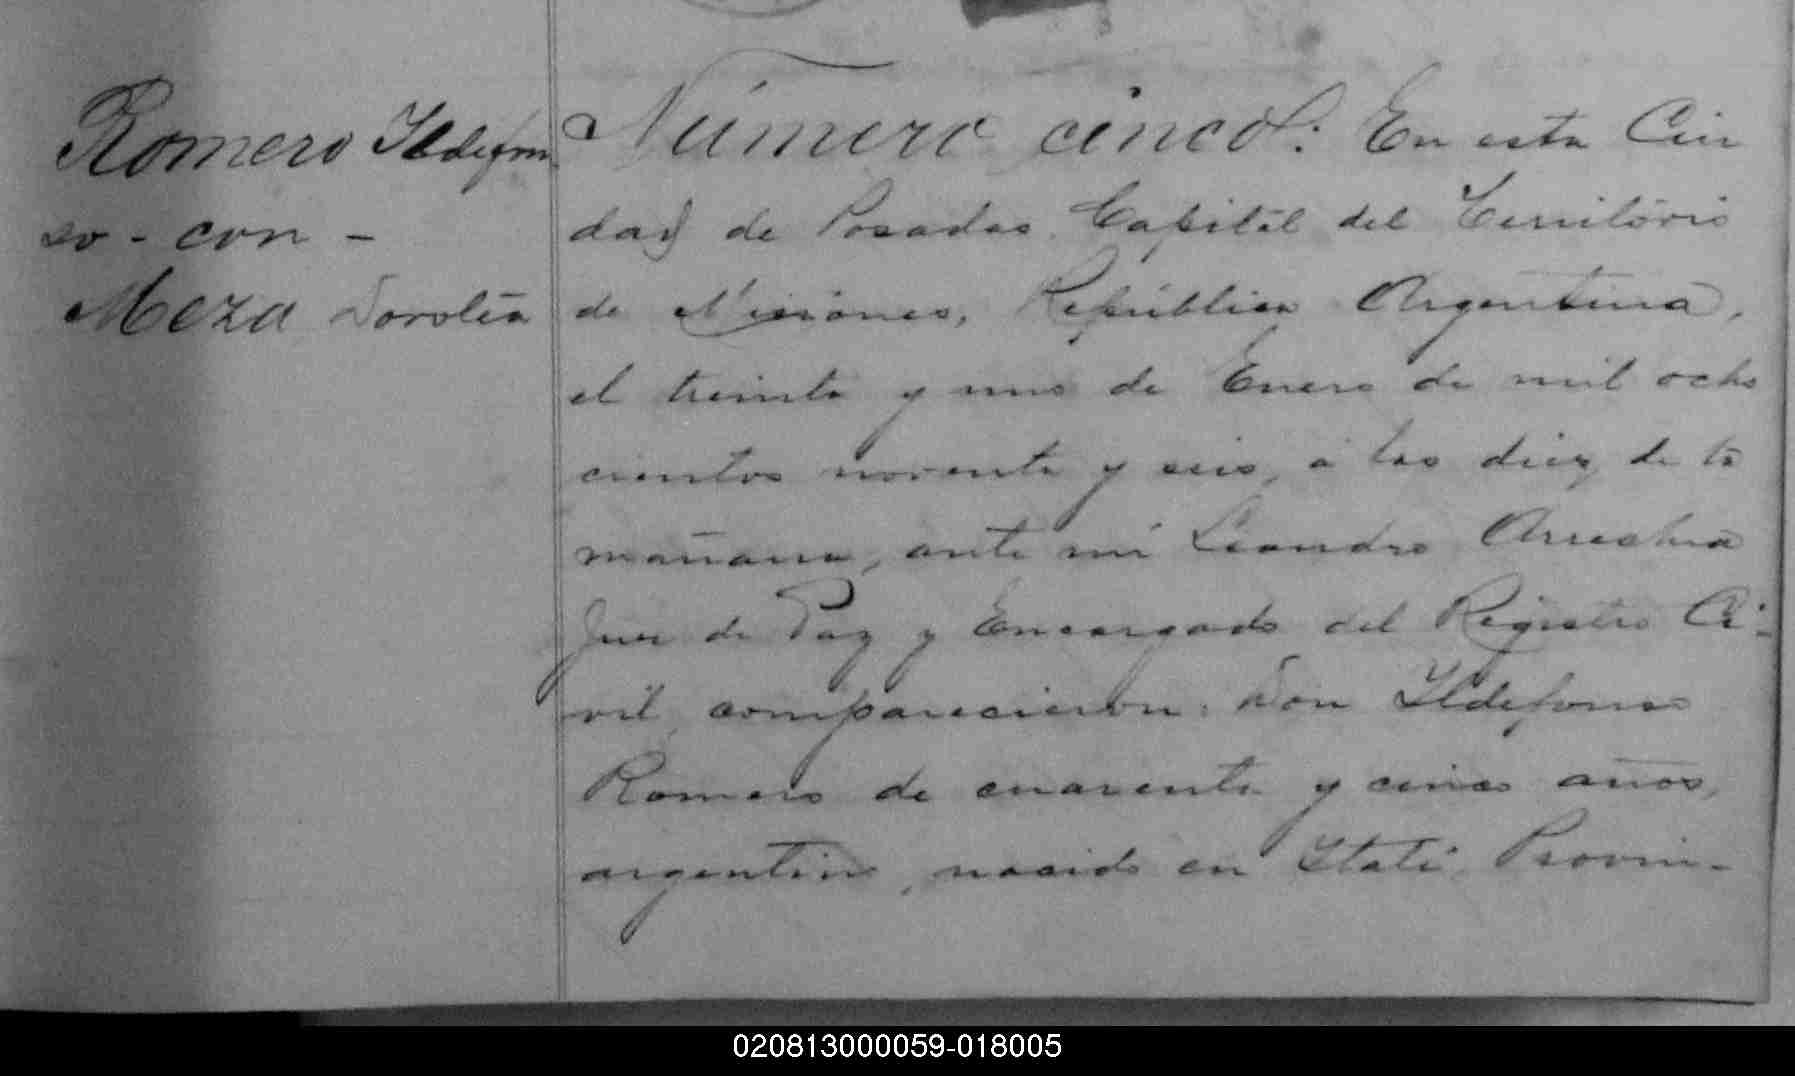 Romero Ildefon
so - con -
Meza Dorotea
Número cinco: En esta Ciu
dad de Posadas Capital del Territorio
de Misiones, República Argentina,
el treinta y uno de Enero de mil ocho
cientos noventa y seis, á las diez de la
mañana, ante mi Leandro Arrechea
Juez de Paz y Encargado del Registro Ci-
vil comparecieron: Don Ildefonso
Romero de cuarenta y cinco años,
argentino, nacido en Itati, Provin-
020813000059-018005